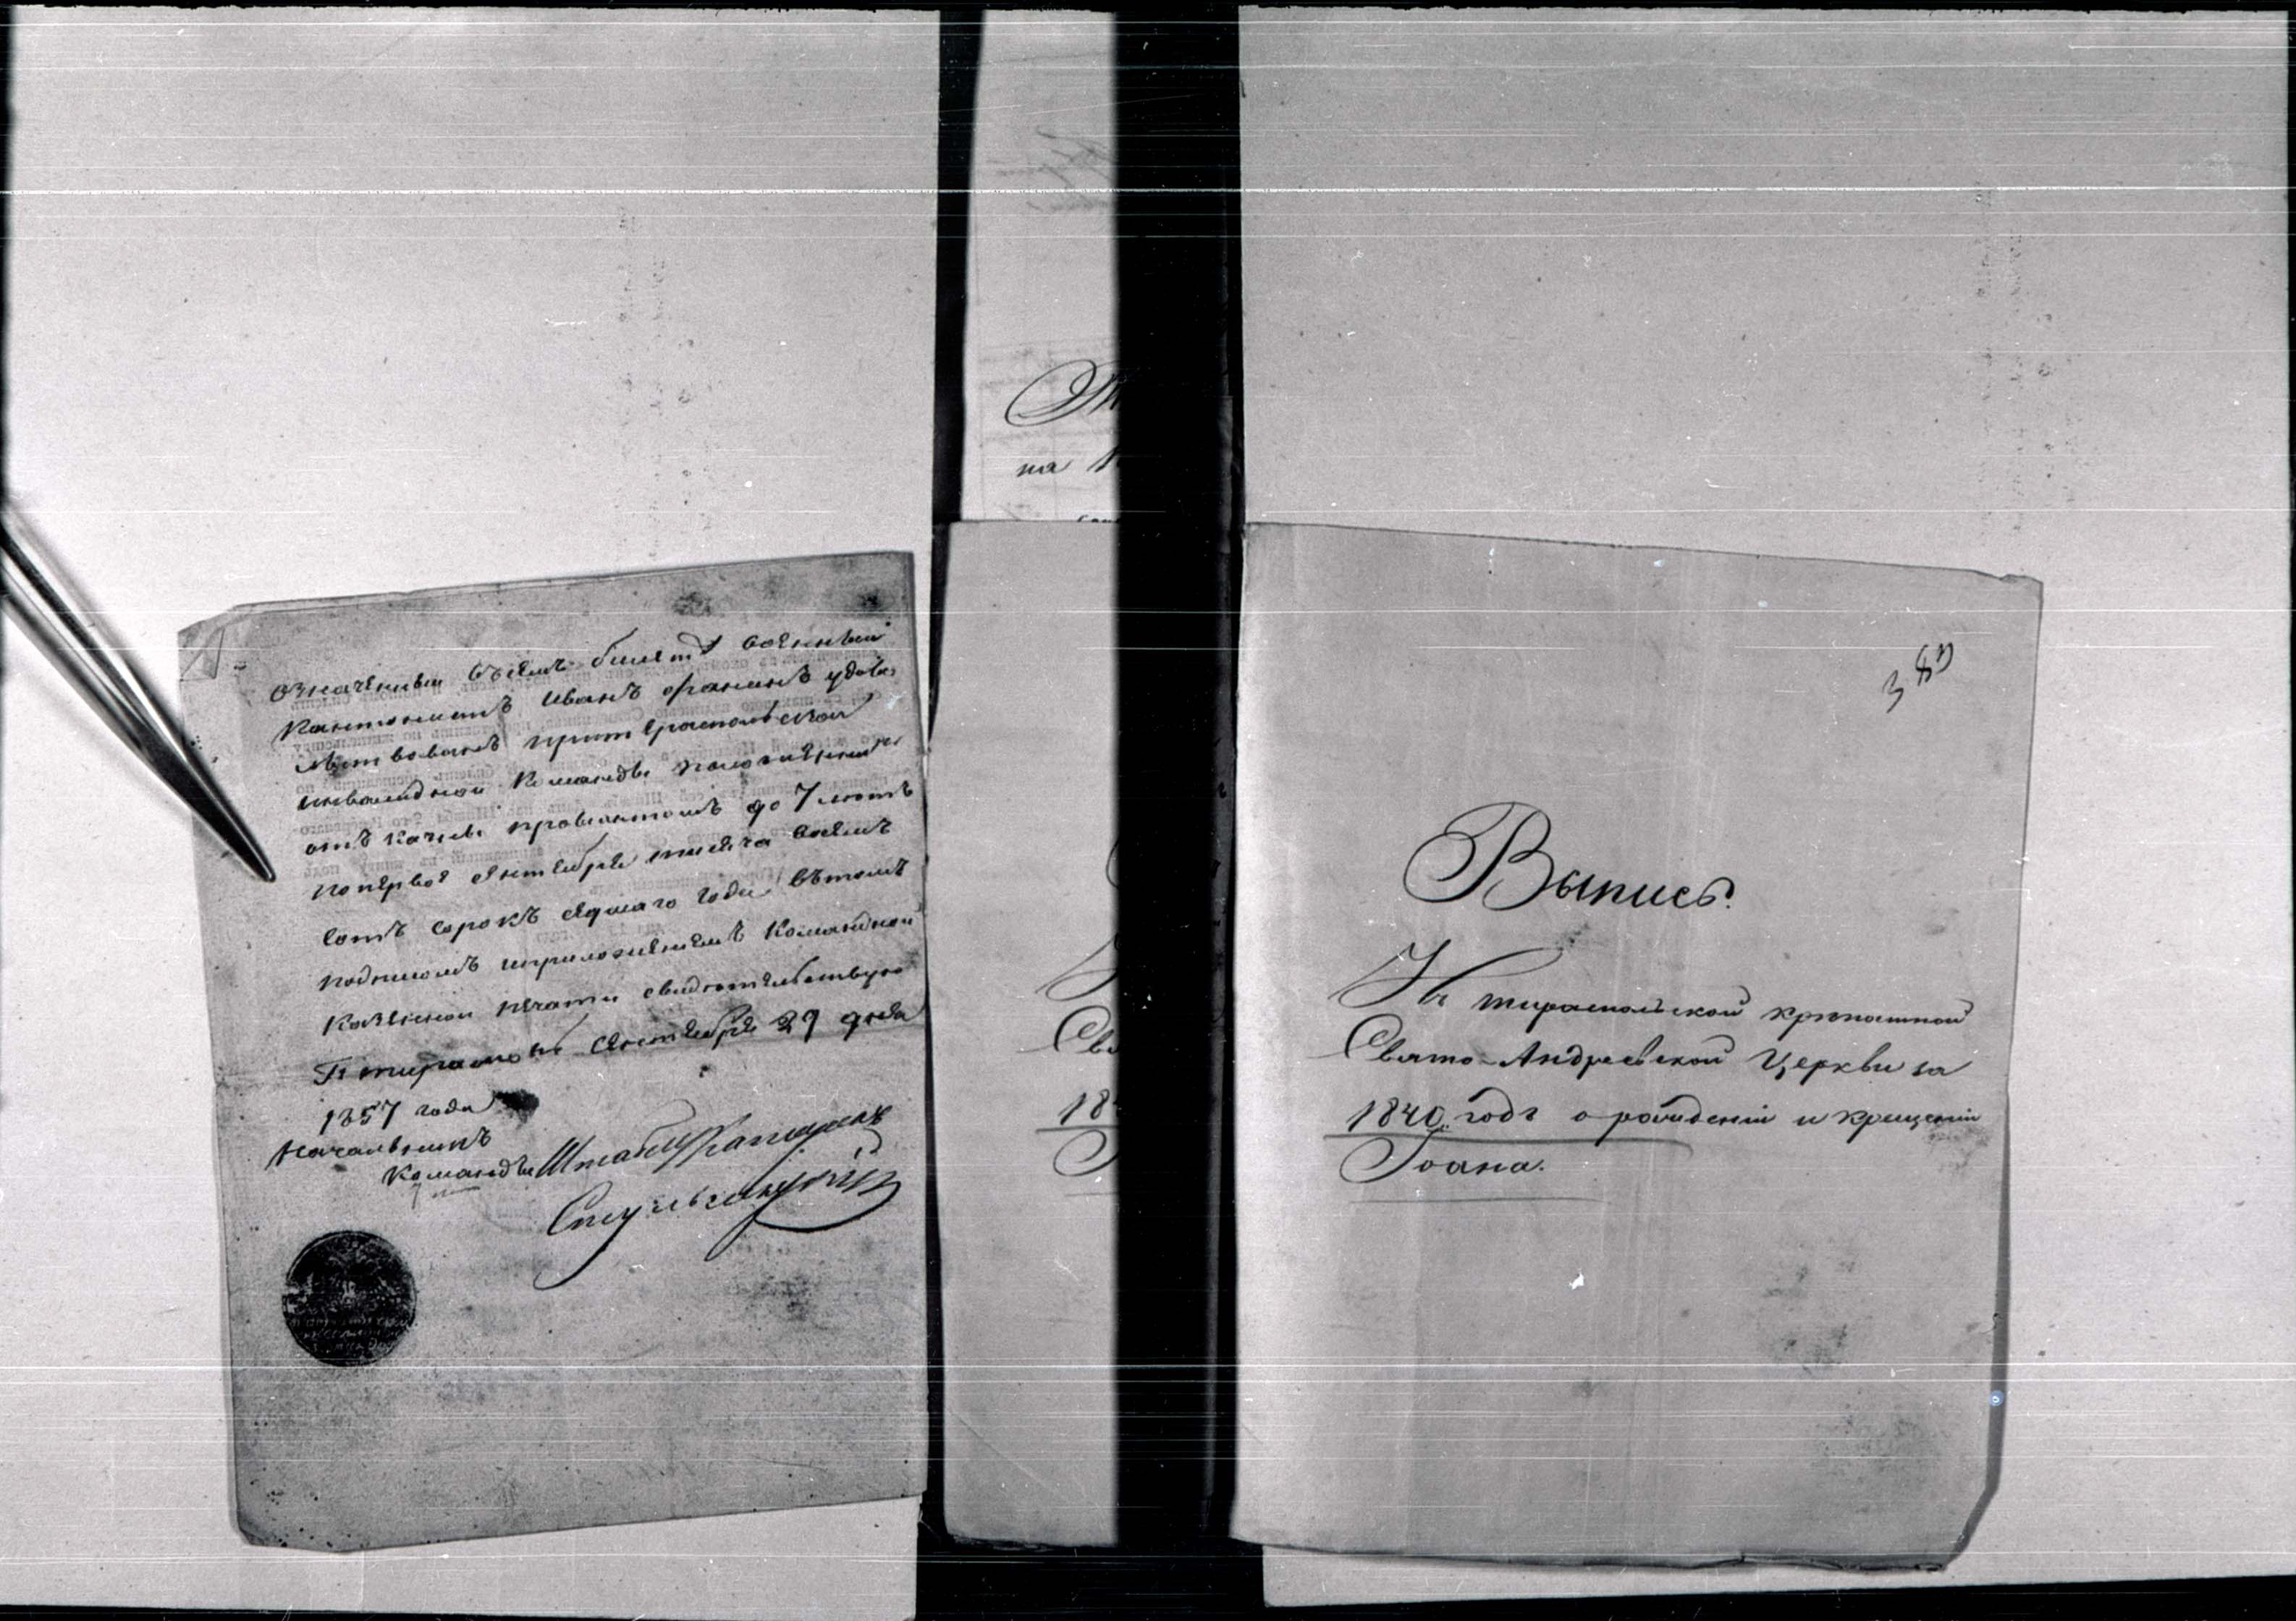 означеныи въсемъ билетѣ военныи
кантонистъ Иванъ Франинъ удовле
лѣтвованъ притираспольской
инвалиднои командѣ положеннымъ
отъ казны провиантомъ до 7 лѣтъ
поперьвое сентебря тысеча восемъ
сотъ сорокъ седмаго года вътомъ
подписомъ иприложениемъ командной
казенной печати свидѣтельствую
Г тирасполь Сентебря 29 дня
1857 года
Началъникъ
Команды Штабсъ Капитанъ
на
Св
18
380
Выпись.
Из тираспольской крѣпостной
Свято-Андреевской Церкви за
1840. годъ о рождении и крещении
Иоана.